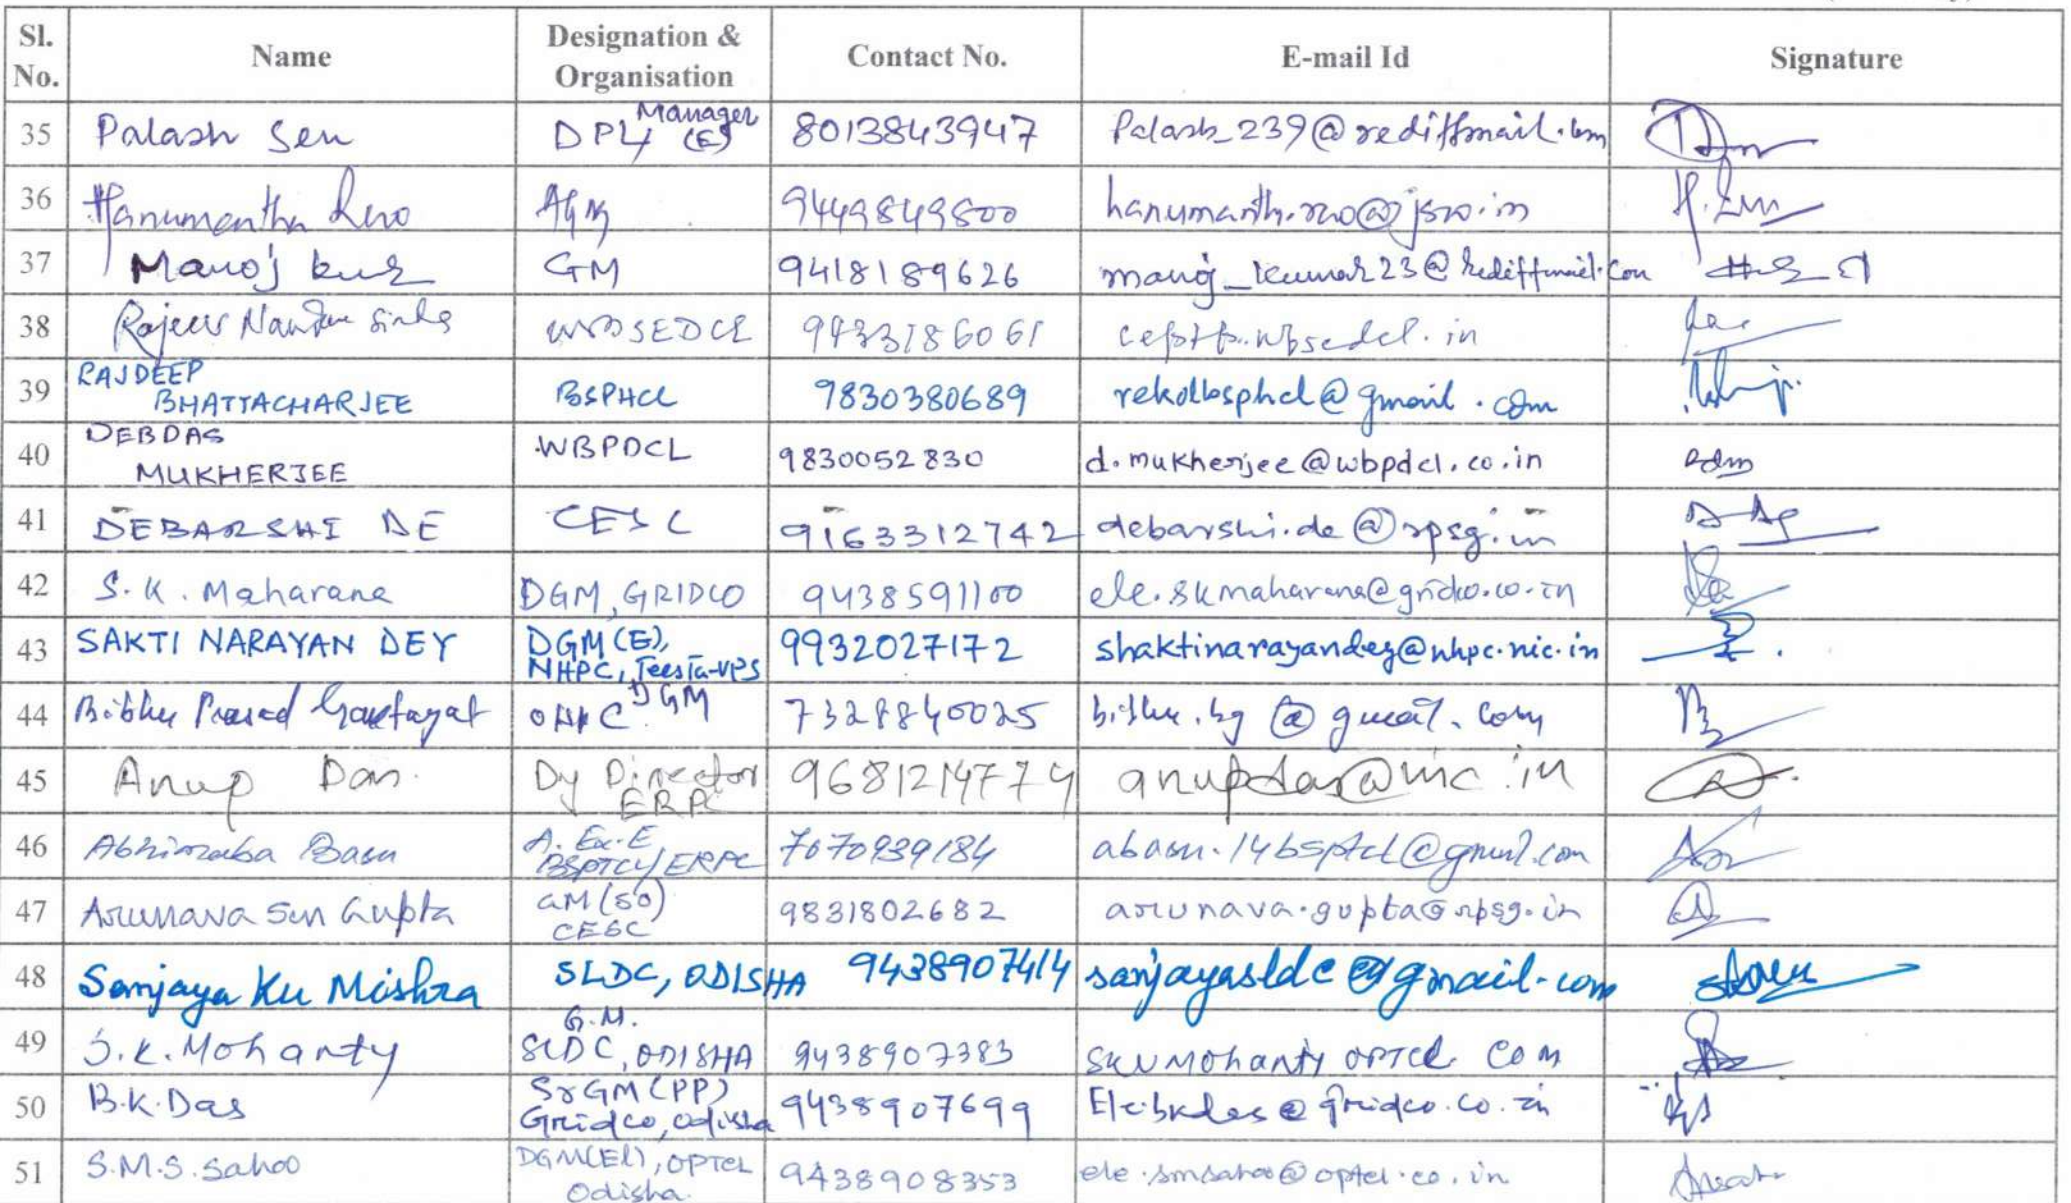 Sl. No. Name Designation & Organisation Contact No. E-mail Id Signature
35 Palash Sen DPL Manager (E) 8013843947 Palash_239@rediffmail.com
36 Hanumantha Rao AGM 9449849800 hanumanth.rao@jsw.in
37 Manoj kur GM 9418189626 manoj_kumar23@rediffmail.com
38 Rajeev Nandan Sinha WBSEDCL .in
39 RAJDEEP BHATTACHARJEE BSPHCL 9830380689 rekolbsphcl@gmail.com
40 DEBDAS MUKHERJEE WBPDCL 9830052830 d.mukherjee@wbpdcl.co.in
41 DEBARSHI DE CESC 9163312742 debarshi.de@rpsg.in
42 S.K. Maharana DGM, GRIDCO 9438591100 ele.skmaharana@gridco.co.in
43 SAKTI NARAYAN DEY DGM(E), NHPC, Teesta-VPS 9932027172 shaktinarayandey@nhpc.nic.in
44 Bibhu Prasad OHPC DGM 7328840025 bibhu.bg@gmail.com
45 Anup Das Dy Director ERPC anupdas@nic.in
46 Basu A.Ex.E BSPTCL/ERPC 7070939184 abasu.14bsptcl@gmail.com
47 Arunava Sen Gupta GM(SO) CESC 9831802682 arunava.gupta@rpsg.in
48 Sanjaya Ku Mishra SLDC, ODISHA 9438907414 sanjayasldc@gmail.com
49 S.K. Mohanty G.M. SLDC, ODISHA 9438907383 OPTCL COM
50 B.K.Das SrGM(PP) Gridco, Odisha 9438907699 Ele.bkdas@gridco.co.in
51 S.M.S. Sahoo DGM(El), OPTCL Odisha. 9438908353 ele.smsahoo@optcl.co.in